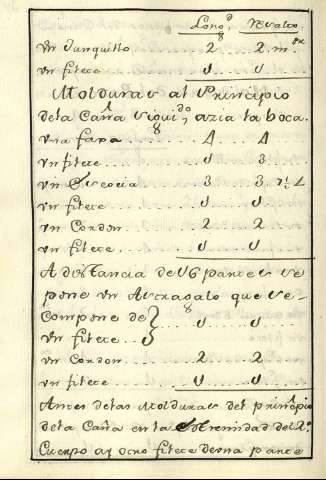 Long.d Resalto.
8
un Junquillo ......... 2 .. 2. m.os
un filete ............ U .... U
Molduras al Principio
dela Caña siguido, azia la boca.
una faxa .. 8 ........ 4 .... 4
un filete ............ U .... 3.
un Escocia ......... 3 .... 3 .. 7½ L
un filete ............ U .... U
un Cordon ........... 2 .... 2
un filete ............ U .... U
A distancia de U6 partes se
pone un Astragalo que se
compone de } 8 .. U .... U
un filete ..
un Cordon ........... 2 .... 2
un filete ............ U .... U
Antes delas Molduras del principio
dela Caña en la Estremidad del 2.o
Cuerpo ay otro filete de una parte